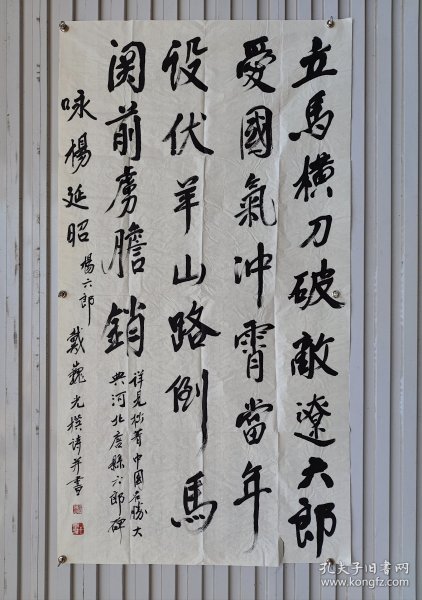 立馬横刀破敵遼六郎
愛國氣冲霄當年
设伏羊山路倒馬
関前虜膽銷
詳見於首中国名勝大
典河北唐縣六郎碑
咏楊延昭楊六郎戴巍光撰诗并書
孔夫子旧书网
www.kongfz.com